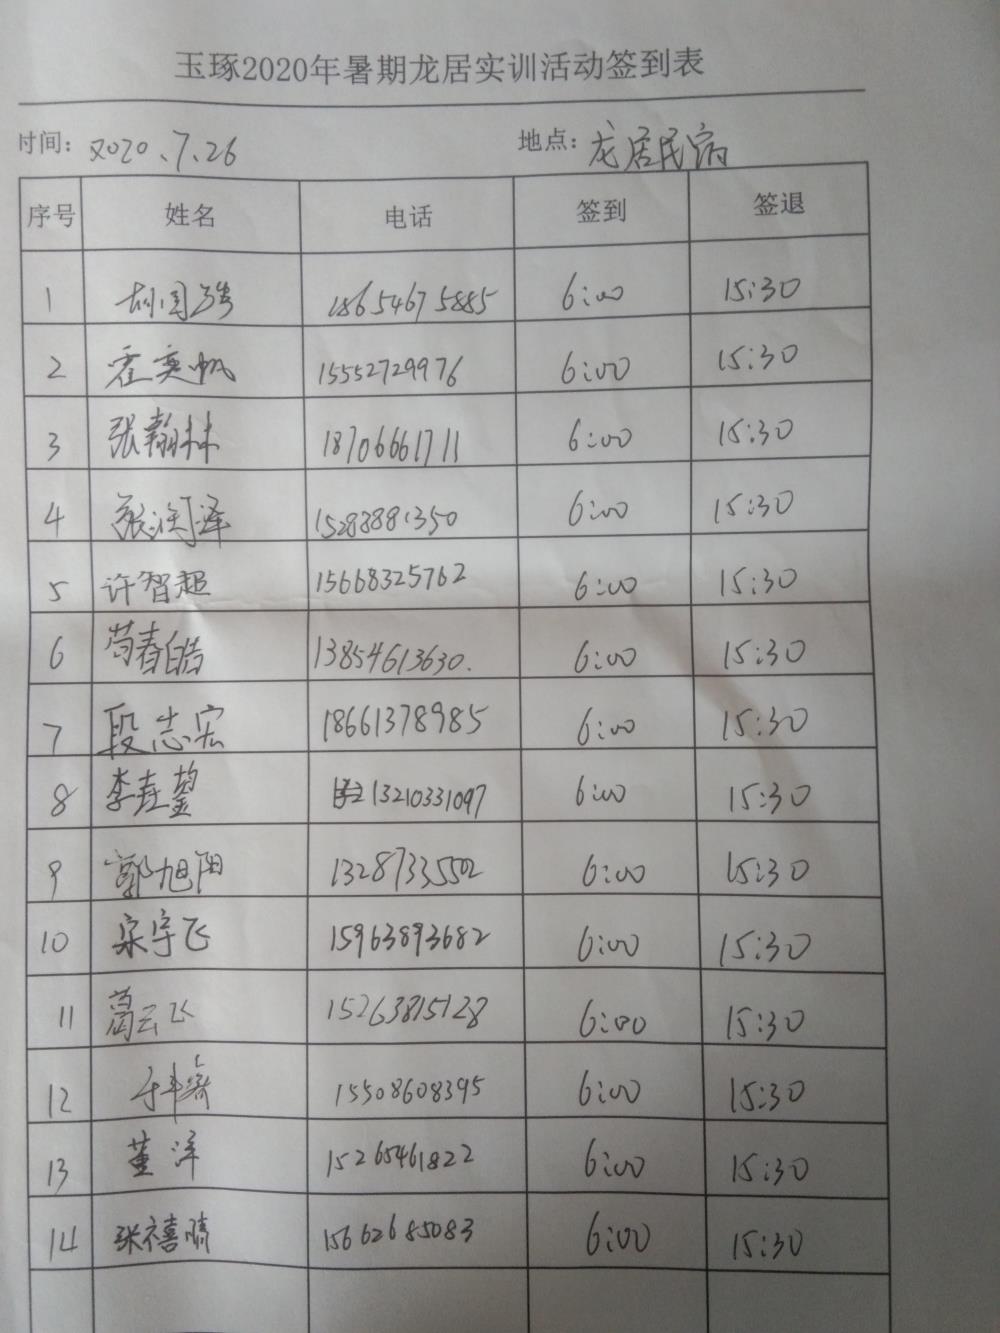 玉琢2020年暑期龙居实训活动签到表
时间: 2020.7.26 地点: 龙居民宿
序号 姓名 电话 签到 签退
1 胡国 18654675885 6:00 15:30
2 霍奕帆 15552729976 6:00 15:30
3 张翰林 18706661711 6:00 15:30
4 张润泽 15288881350 6:00 15:30
5 许智超 15668325762 6:00 15:30
6 苟春皓 13854613630. 6:00 15:30
7 段志宏 18661378985 6:00 15:30
8 李垚鋆 13210331097 6:00 15:30
9 郭旭阳 13287335502 6:00 15:30
10 宋宇飞 15963893682 6:00 15:30
11 葛云飞 15263815128 6:00 15:30
12 15508608395 6:00 15:30
13 董洋 15265461822 6:00 15:30
14 张禧晴 15662685083 6:00 15:30